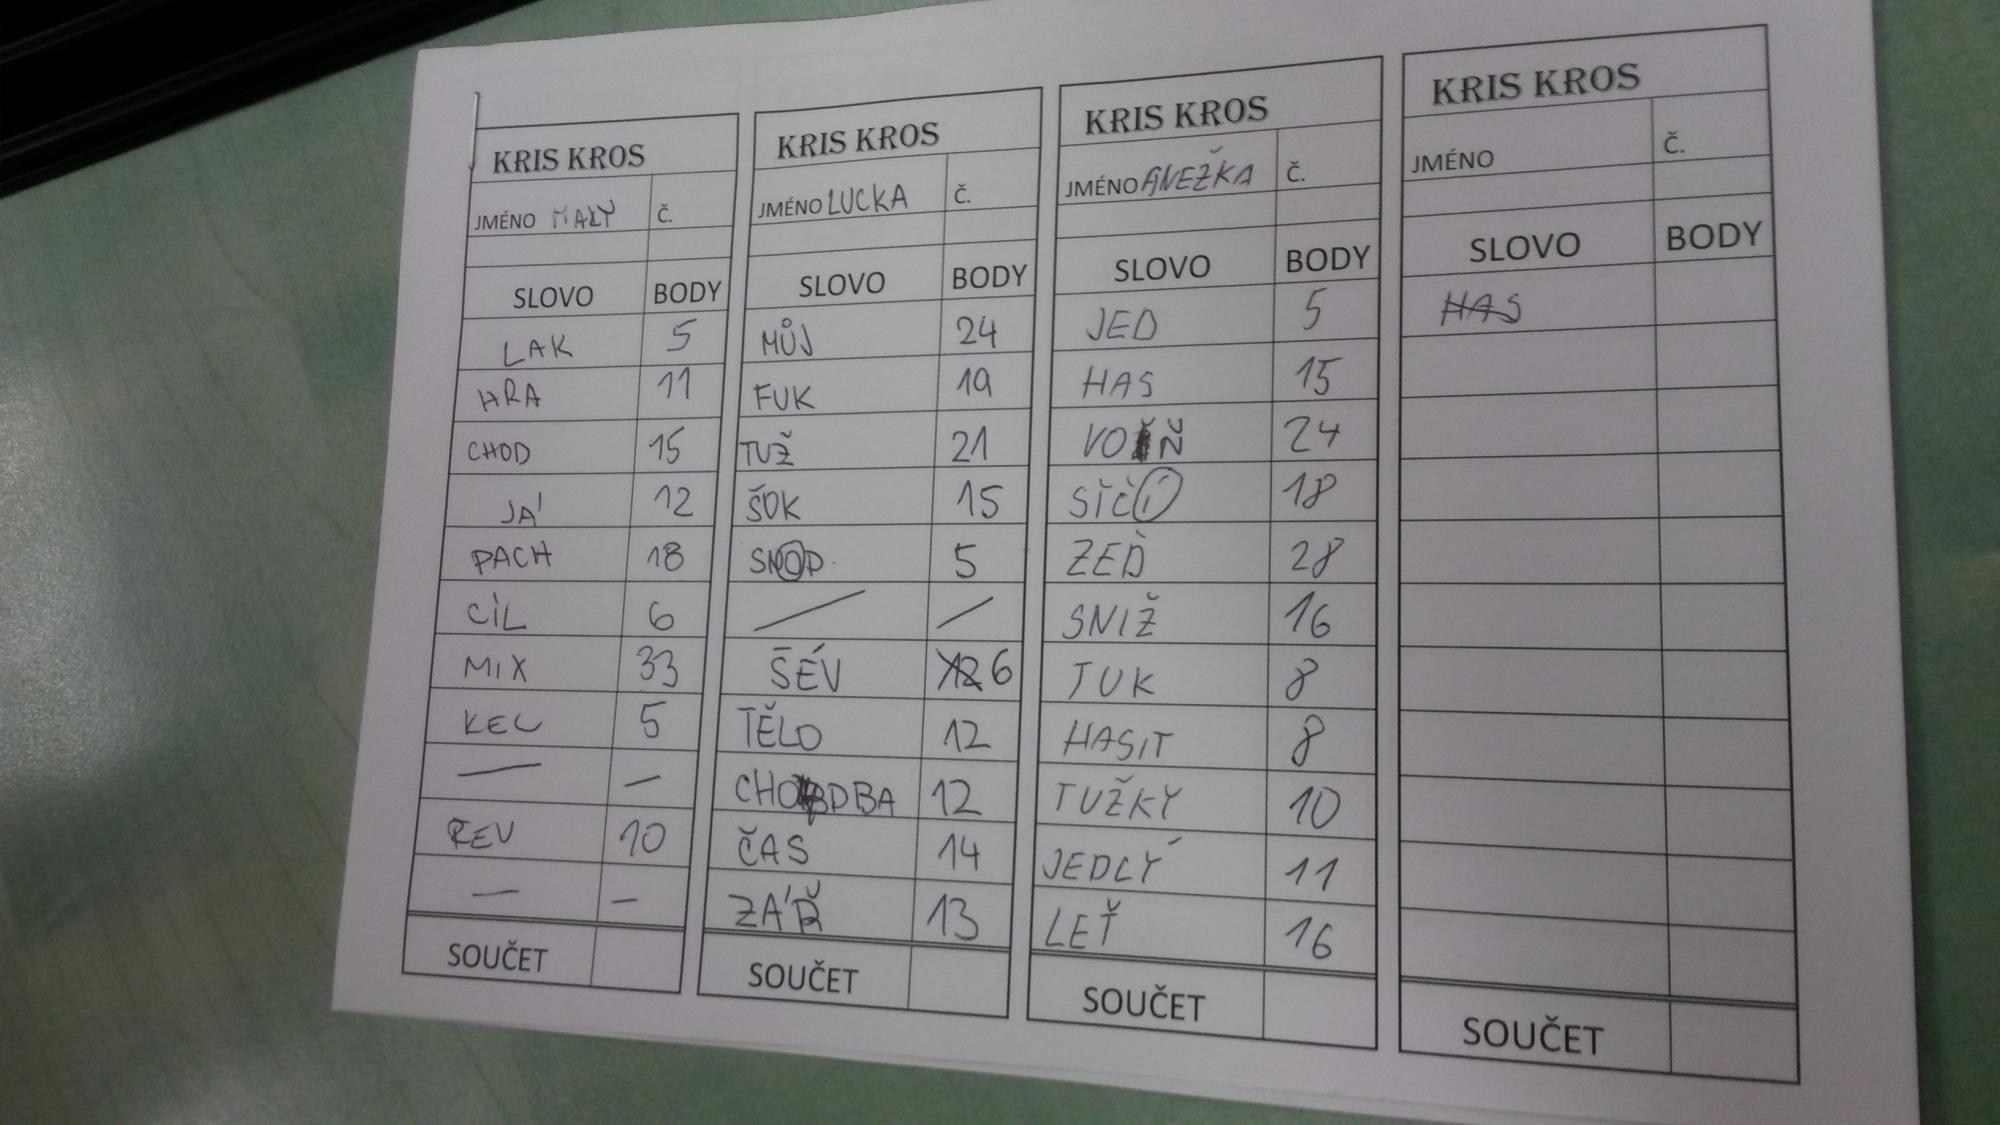 KRIS KROS
JMÉNO MALÝ Č.
SLOVO BODY
LAK 5
HRA 11
CHOD 15
JÁ 12
PACH 18
CÍL 6
MIX 33
KEL 5
— —
ŘEV 10
— —
SOUČET
KRIS KROS
JMÉNO LUCKA Č.
SLOVO BODY
MŮJ 24
FUK 19
TUŽ 21
ŠOK 15
SNOP 5
/ /
ŠÉV 6
TĚLO 12
CHODBA 12
ČAS 14
ZÁŘ 13
SOUČET
KRIS KROS
JMÉNO ANEŽKA Č.
SLOVO BODY
JED 5
HAS 15
VOŽ 24
SÍČÍ 18
ZEĎ 28
SNIŽ 16
TUK 8
HASIT 8
TUŽKY 10
JEDLÝ 11
LEŤ 16
SOUČET
KRIS KROS
JMÉNO Č.
SLOVO BODY
HAS
SOUČET